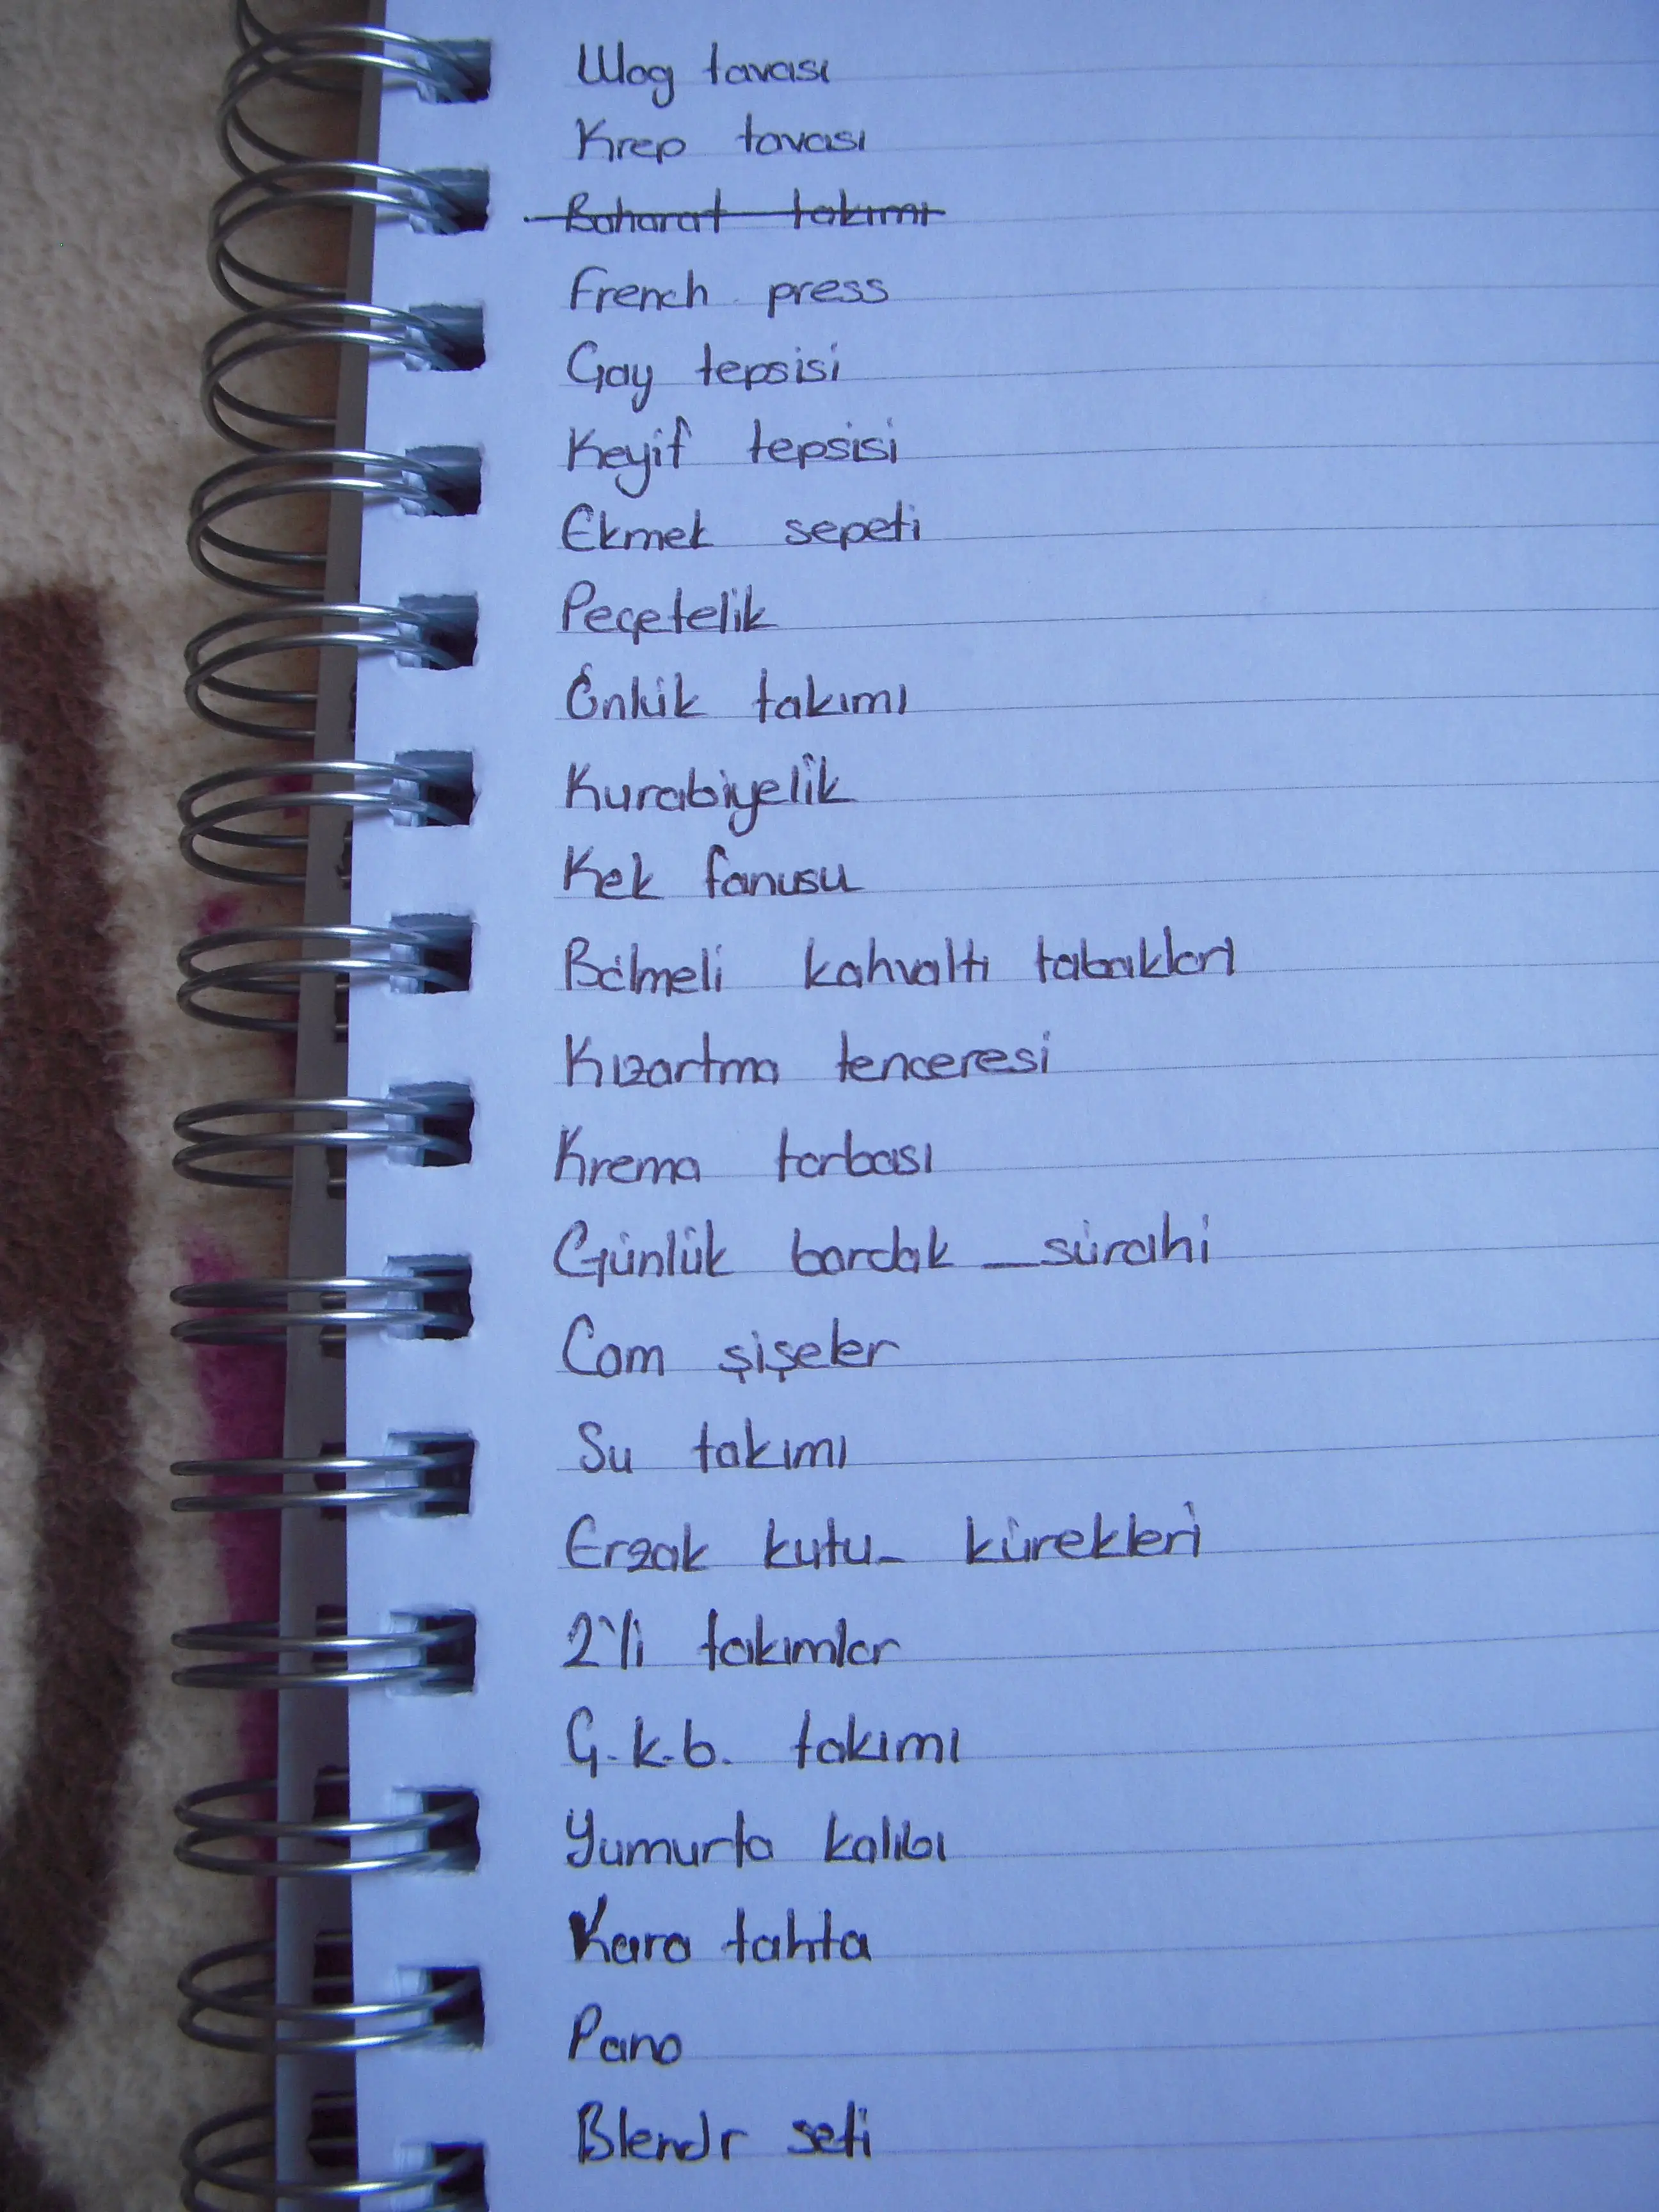 Wog tavası
Krep tavası
Baharat takımı
French press
Çay tepsisi
Keyif tepsisi
Ekmek sepeti
Peçetelik
Önlük takımı
Kurabiyelik
Kek fanusu
Bölmeli kahvaltı tabakları
Kızartma tenceresi
Krema torbası
Günlük bardak _ sürahi
Cam şişeler
Su takımı
Erzak kutu _ kürekleri
2'li takımlar
Ç.k.b. takımı
Yumurta kalıbı
Kara tahta
Pano
Blendr seti